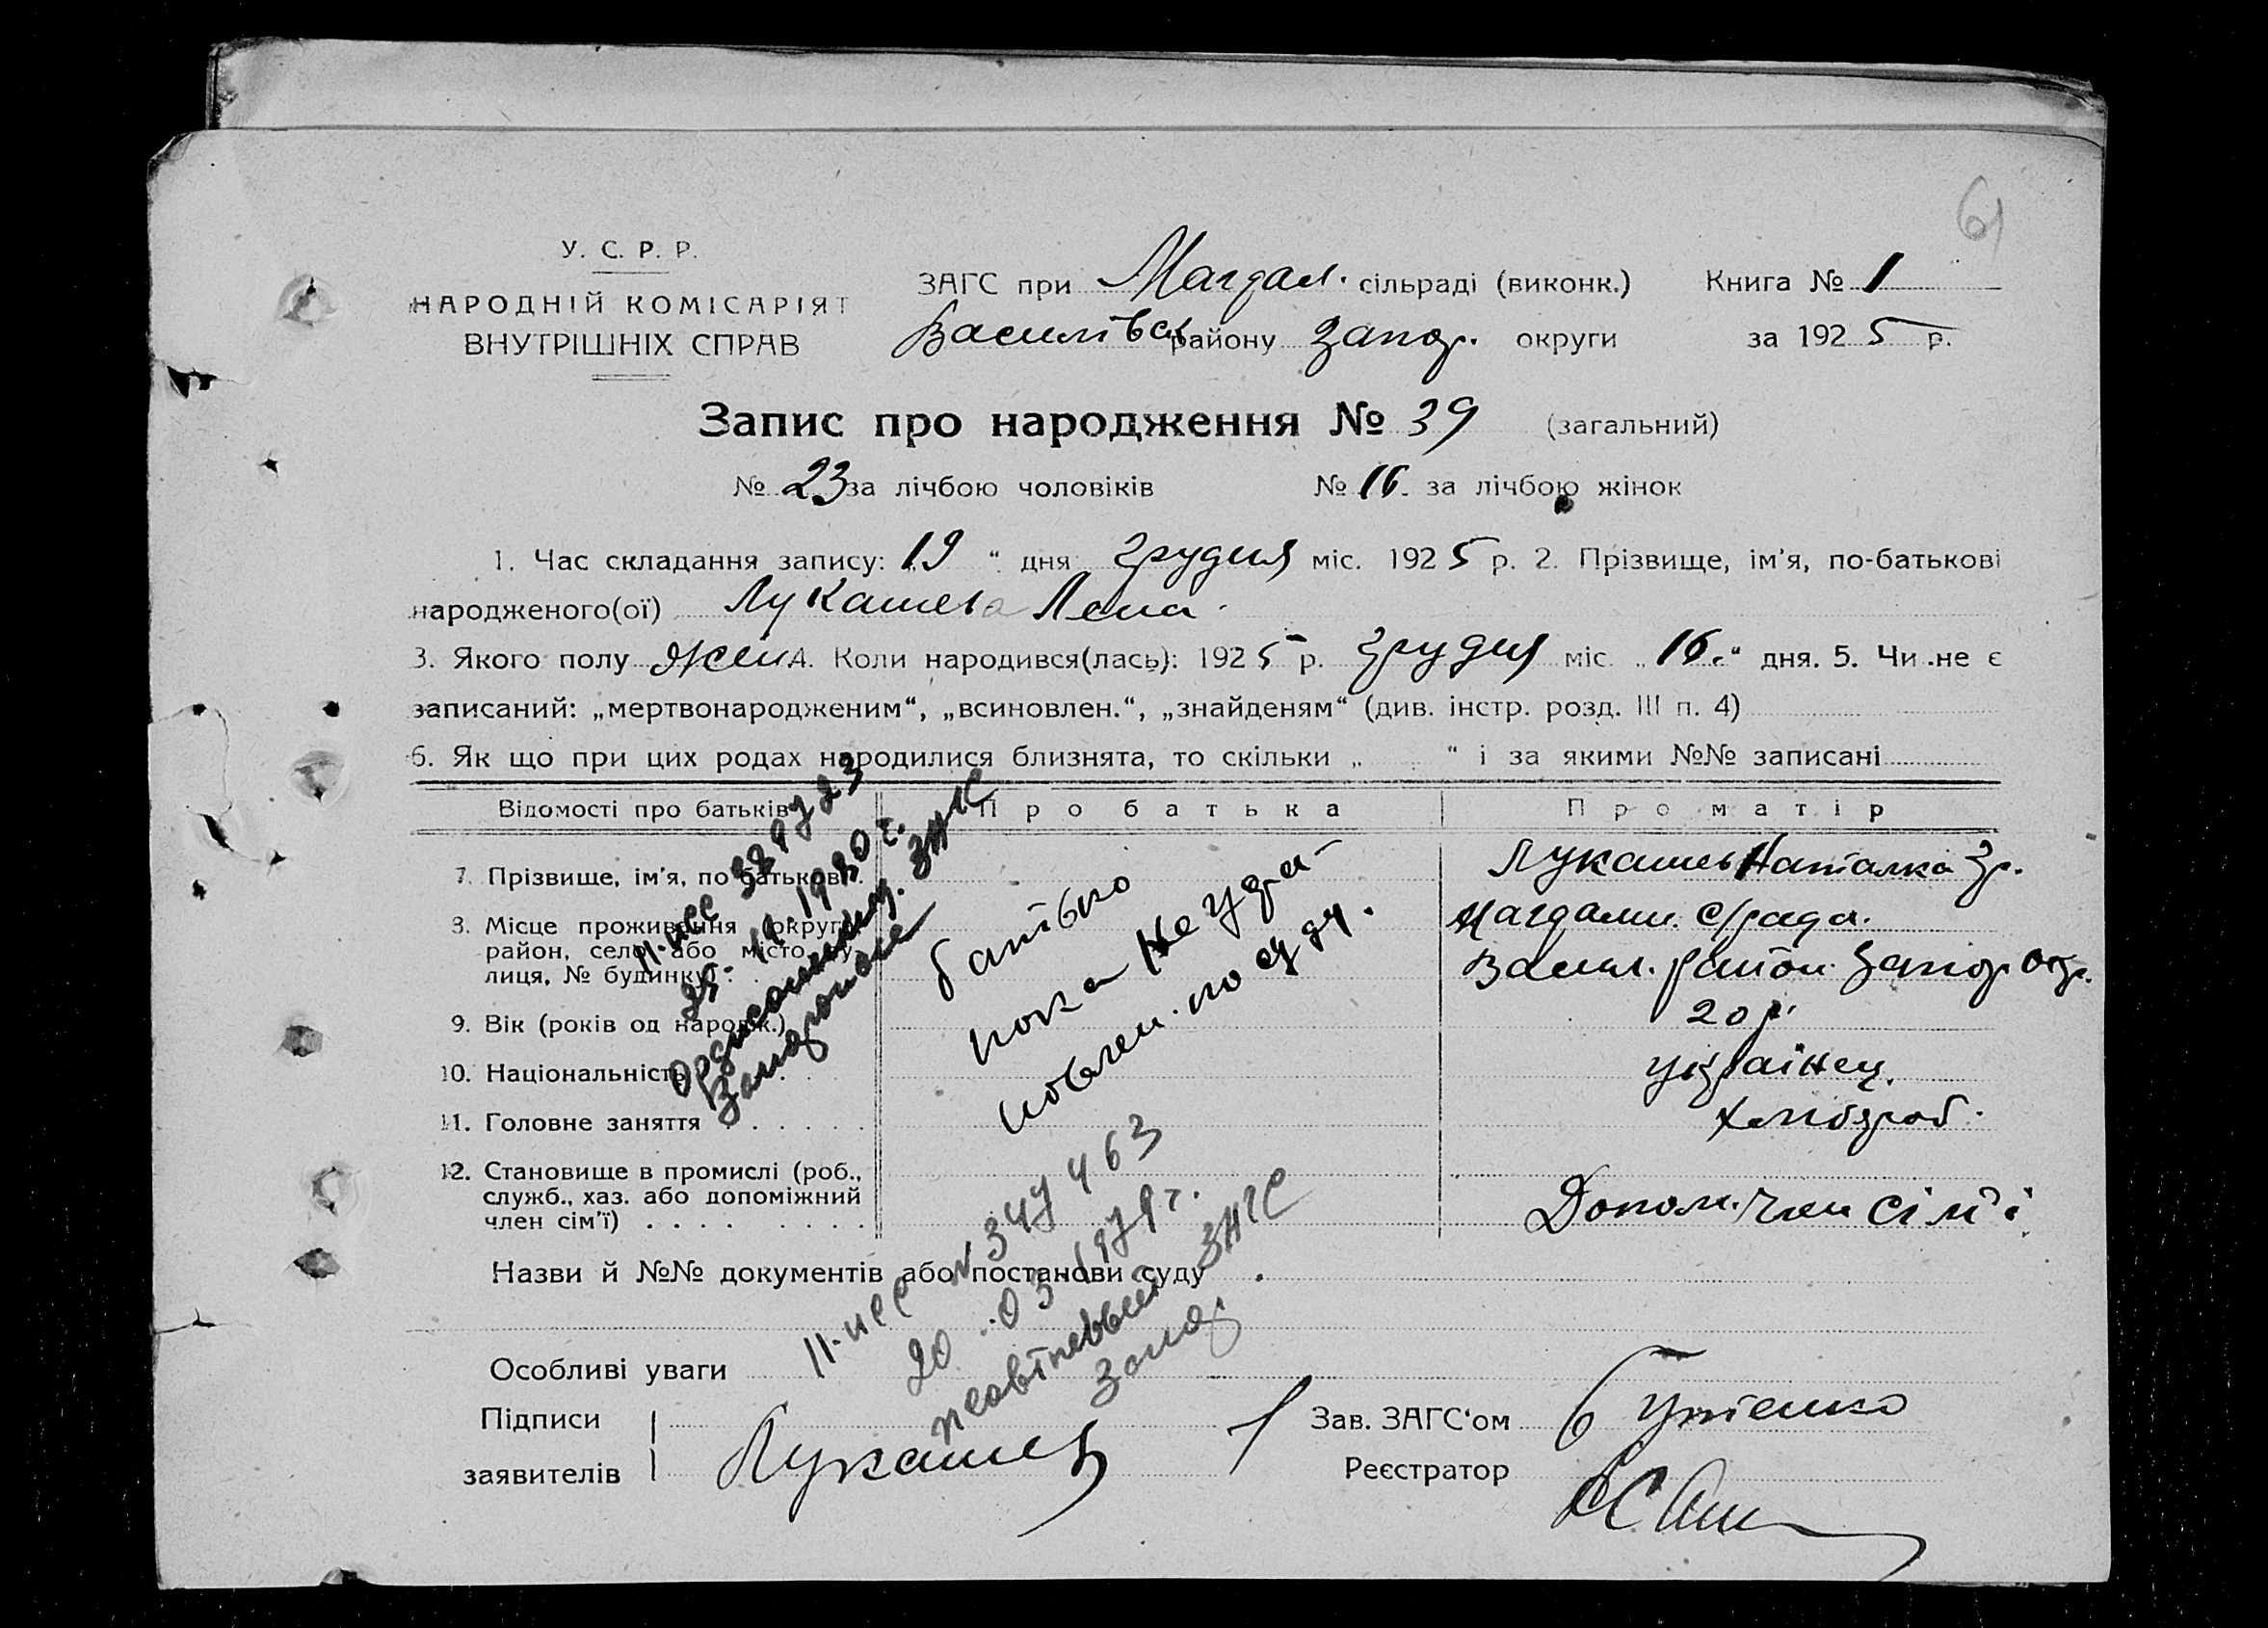 61
У. С. Р. Р.
НАРОДНІЙ КОМІСАРІЯТ
ВНУТРІШНІХ СПРАВ
ЗАГС при Магдал. сільраді (виконк.) Книга № 1
Василівськ району Запор. округи за 1925 р.
Запис про народження № 39 (загальний)
№ 23 за лічбою чоловіків № 16. за лічбою жінок
1. Час складання запису: „19“ дня грудня міс. 1925 р. 2. Прізвище, ім'я, по-батькові
народженого(ої) Лукашева Лена.
3. Якого полу жін. 4. Коли народився(лась): 1925 р. грудня міс. „16“ дня. 5. Чи не є
записаний: „мертвонародженим“, „всиновлен.“, „знайденям“ (див. інстр. розд. III п. 4)
6. Як що при цих родах народилися близнята, то скільки „ “ і за якими №№ записані
Відомості про батьків Про батька Про матір
7. Прізвище, ім'я, по батькові. Лукашев Наталка Гр.
8. Місце проживання (округа, Магдалин. с/рада.
район, село або місто, ву-
лиця, № будинку) Васил. район Запор. окр.
9. Вік (років од народж.) 20 р.
10. Національність українец.
11. Головне заняття хлібороб.
12. Становище в промислі (роб.,
служб., хаз. або допоміжний
член сім'ї) Допом. член сім'ї
батько
пока не
II-ЖС 389723
25. 11 1980 г.
Орджоникид. ЗАГС
Запорожье
Назви й №№ документів або постанови суду
II-ЖС № 347463
20. 03 1979 г.
ЗАГС
Запор
Особливі уваги
Підписи
заявителів Лукашев
Зав. ЗАГС'ом Бутенко
Реєстратор